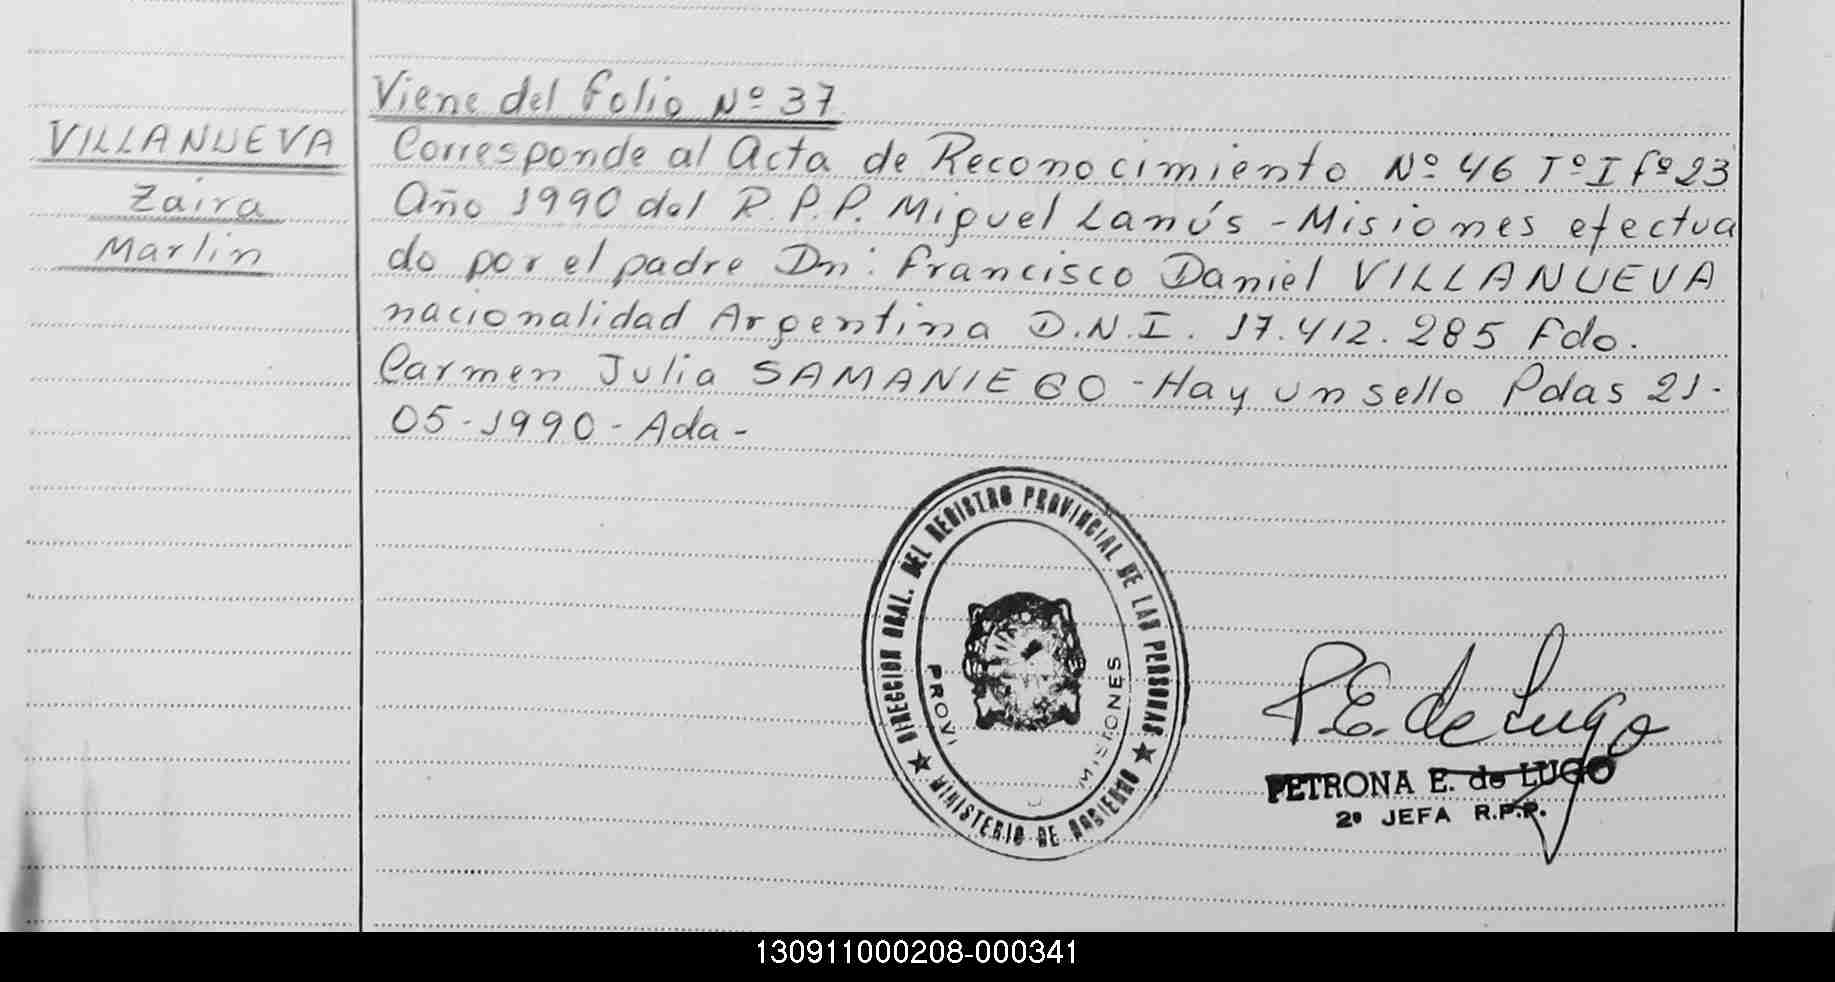 Viene del folio Nº 37
VILLANUEVA
Zaira
Marlin
Corresponde al Acta de Reconocimiento Nº 46 Tº I fº 23
Año 1990 del R.P.P. Miguel Lanús - Misiones efectua
do por el padre Dn: Francisco Daniel VILLANUEVA
nacionalidad Argentina D.N.I. 17.412.285 Fdo.
Carmen Julia SAMANIEGO - Hay un sello Pdas 21-
05-1990 - Ada -
DIRECCION GRAL. DEL REGISTRO PROVINCIAL DE LAS PERSONAS
MINISTERIO DE GOBIERNO
PROVI
MISIONES
P.E. de Lugo
PETRONA E. de LUGO
2º JEFA R.P.P.
130911000208-000341